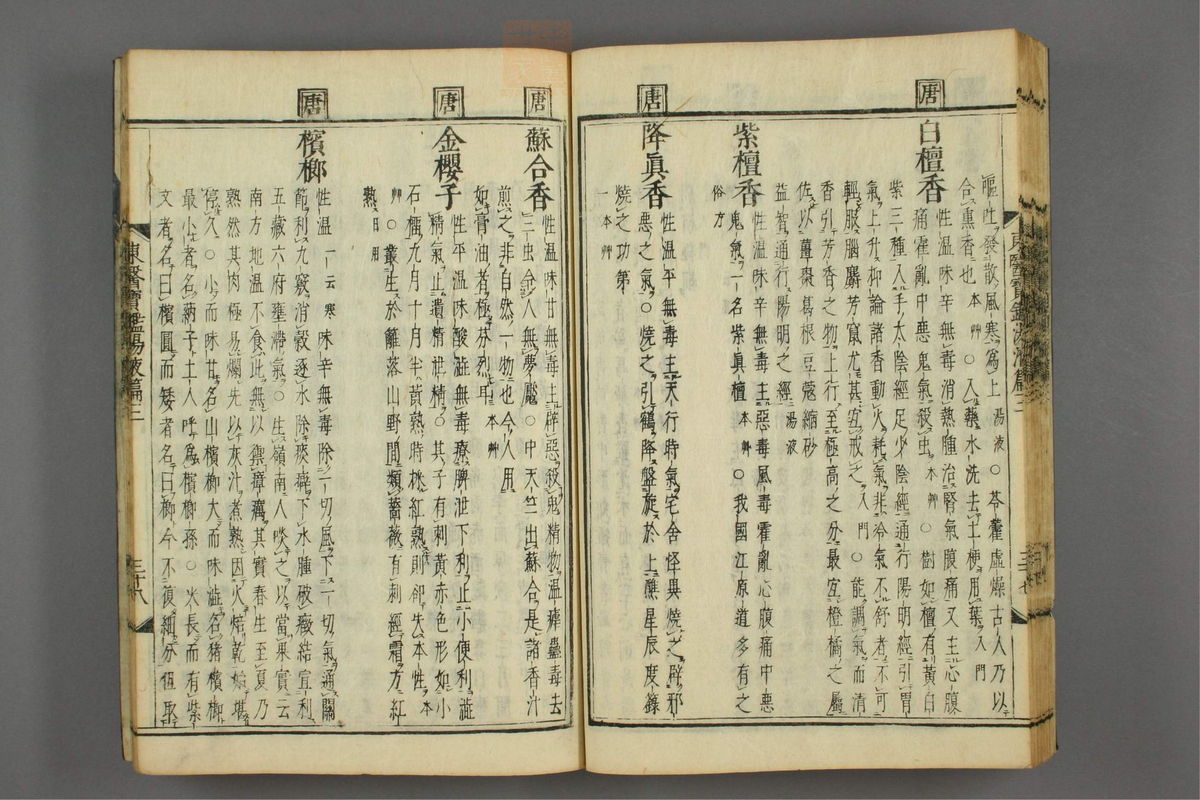 嘔吐發散風寒爲上 湯液 ○ 苓藿虛燥古人乃以
合熏香也 本艸 ○ 入藥水洗去土梗用葉 入門
唐
白檀香 性温味辛無毒消熱腫治腎氣腹痛又主心腹
痛霍亂中惡鬼氣殺虫 本艸 ○ 樹如檀有黃白
紫三種入手太陰經足少陰經通行陽明經引胃
氣上升抑論諸香動火耗氣非冷氣不舒者不可
輕服腦麝芳竄尤其宜戒之 入門 ○ 能調氣而清
香引芳香之物上行至極高之分最宜橙橘之屬
佐以薑棗葛根豆蔻縮砂
益智通行陽明之經 湯液
紫檀香 性温味辛無毒主惡毒風毒霍亂心腹痛中惡
鬼氣一名紫眞檀 本艸 ○ 我國江原道多有之
俗方
唐
降眞香 性温平無毒主天行時氣宅舍怪異燒之辟邪
惡之氣 ○ 燒之引鶴降盤旋於上醮星辰度籙
燒之功第
一 本艸
東醫寶鑑湯液篇三
三十七
唐
蘇合香 性温味甘無毒主辟惡殺鬼精物温瘧蠱毒去
三虫令人無夢魘 ○ 中天竺出蘇合是諸香汁
煎之非自然一物也今人用
如膏油者極芬烈耳 本艸
唐
金櫻子 性平温味酸澁無毒療脾泄下利止小便利澁
精氣止遺精泄精 ○ 其子有刺黃赤色形如小
石榴九月十月半黃熟時採紅熟則却失本性 本
艸 ○ 叢生於籬落山野間類薔薇有刺經霜方紅
熟 日用
唐
檳榔 性温 一云寒 味辛無毒除一切風下一切氣通關
節利九竅消穀逐水除痰癖下水腫破癥結宣利
五藏六府壅滯氣 ○ 生嶺南人啖之以當果實云
南方地温不食此無以禦瘴癘其實春生至夏乃
熟然其肉極易爛先以灰汁煮熟因火焙乾始堪
停久 ○ 小而味甘名山檳榔大而味澁名猪檳榔
最小者名蒳子土人呼爲檳榔孫 ○ 米長而有紫
文者名曰檳圓而矮者名曰榔今不復細分但取
東醫寶鑑湯液篇三
三十八